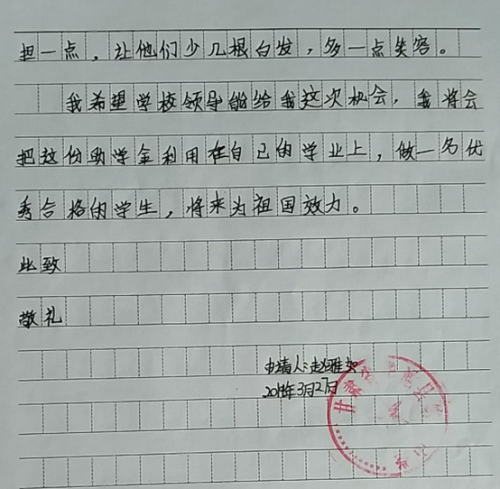 担一点，让他们少几根白发，多一点笑容。
我希望学校领导能给我这次机会，我将会
把这份助学金利用在自己的学业上，做一名优
秀合格的学生，将来为祖国效力。
此致
敬礼
申请人：赵雅
3月27日
甘肃